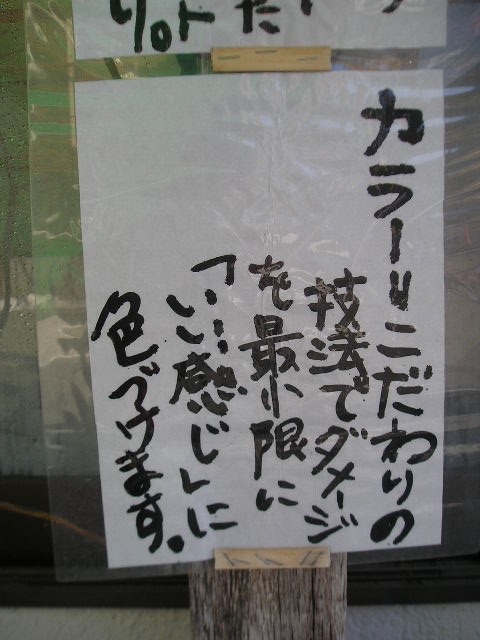 カラー〃こだわりの
技法でダメージ
を最小限に
「いい感じ」に
色づけます。